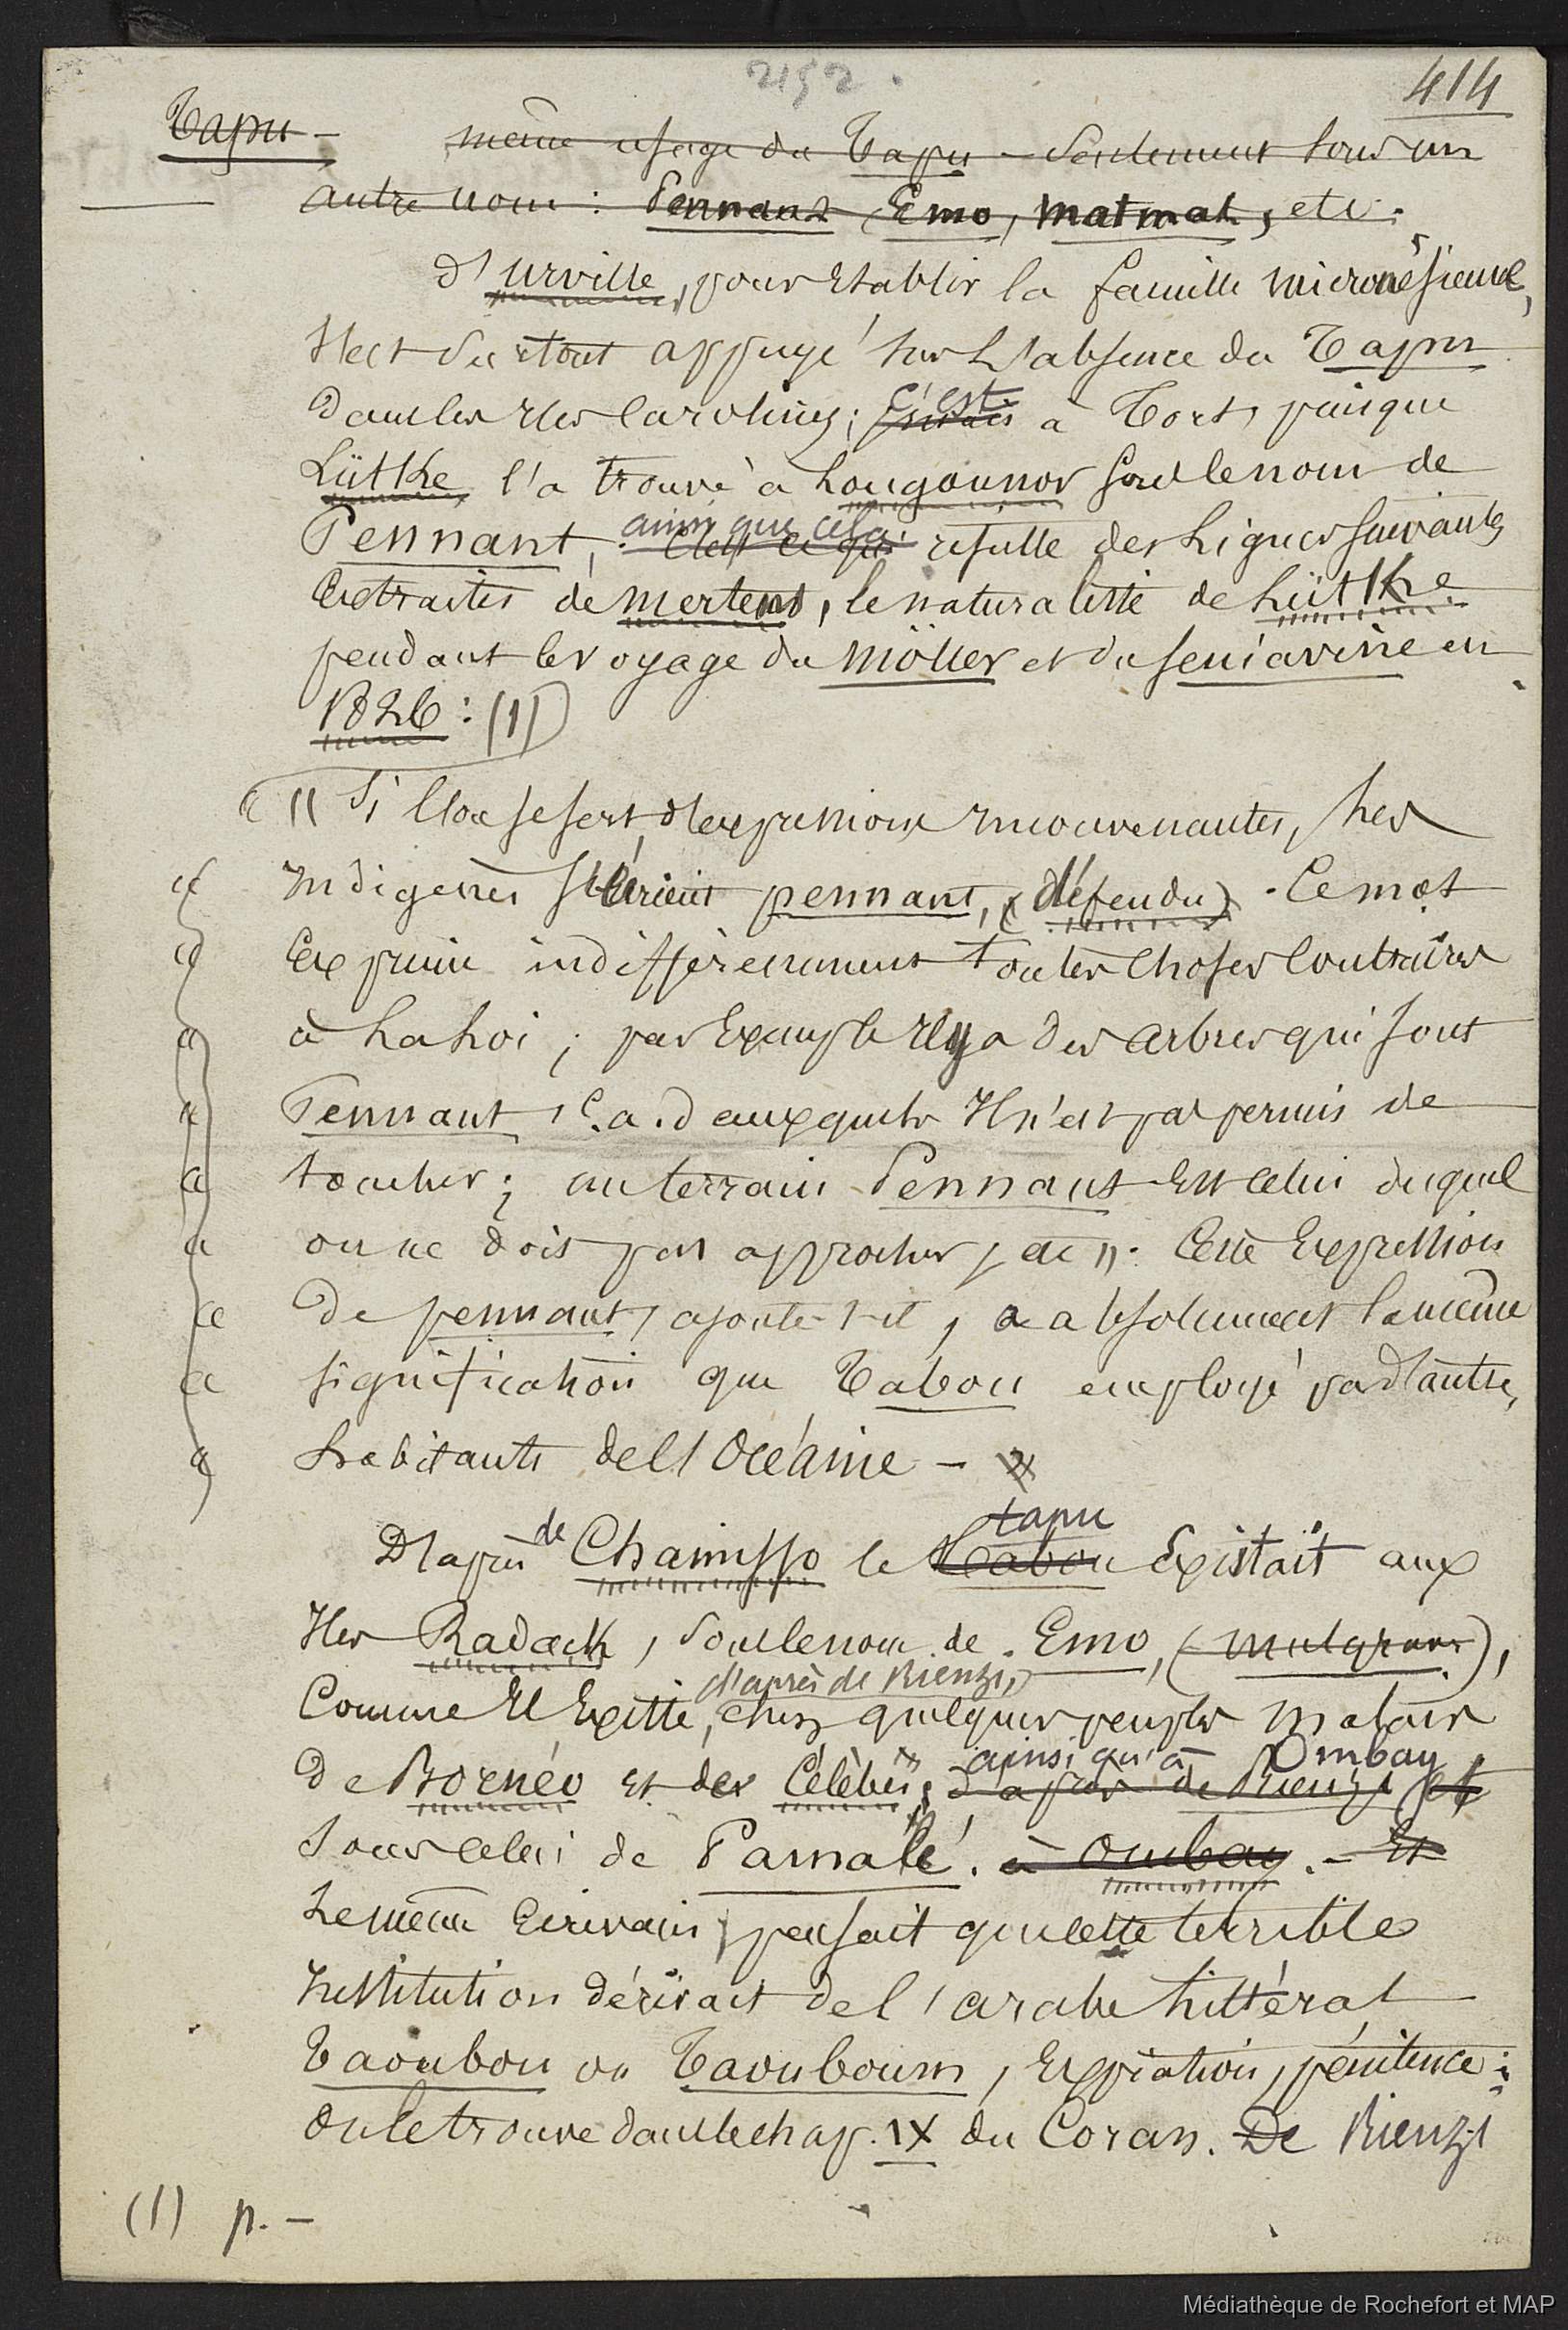 2152.
414
Tapu -
même usage du Tapu - seulement sous un
autre nom : Pennant, Emo, matmat, etc.
d'urville, pour établir la famille micronésienne,
s'est surtout appuyé sur l'absence du Tapu
dans les Iles Carolines; c'est à Tort, puisque
Lütke l'a trouvé à Lougounnor sous le nom de
Pennant, ainsi que cela c'est ce qui résulte des Lignes suivantes
Extraites de mertens, le naturaliste de Lütke
pendant le voyage du möller et du seniavine en
1826 : (1)
" Si l'on se sert d'expressions inconvenantes, les
Indigènes s'écrient pennant, (défendu). Ce mot
Exprime indifféremment toutes choses Contraires
à la Loi ; par Exemple Il y a des arbres qui sont
Pennant, C.a.d auxquels Il n'est pas permis de
toucher ; un terrain Pennant est celui duquel
on ne doit pas approcher, etc ". Cette Expression
de pennant, ajoute-t-il, a absolument la même
signification que Tabou employé par d'autres
habitants de l'Océanie -
D'après de Chamisso le Tabou tapu Existait aux
Iles Radack, sous le nom de Emo, (mulgrave),
Comme Il Existe, d'après de Rienzi, chez quelques peuples malais
de Bornéo et des Célèbes, d'après de Rienzi, et ainsi qu'à Ombay
sous celui de Pamalé. à Ombay. - Et
Le même Ecrivain pensait que cette terrible
Institution dérivait de l'arabe littéral
Taoubou ou Taouboun, Expiation, pénitence ;
on le trouve dans le chap. IX du Coran. De Rienzi
(1) p. -
Médiathèque de Rochefort et MAP